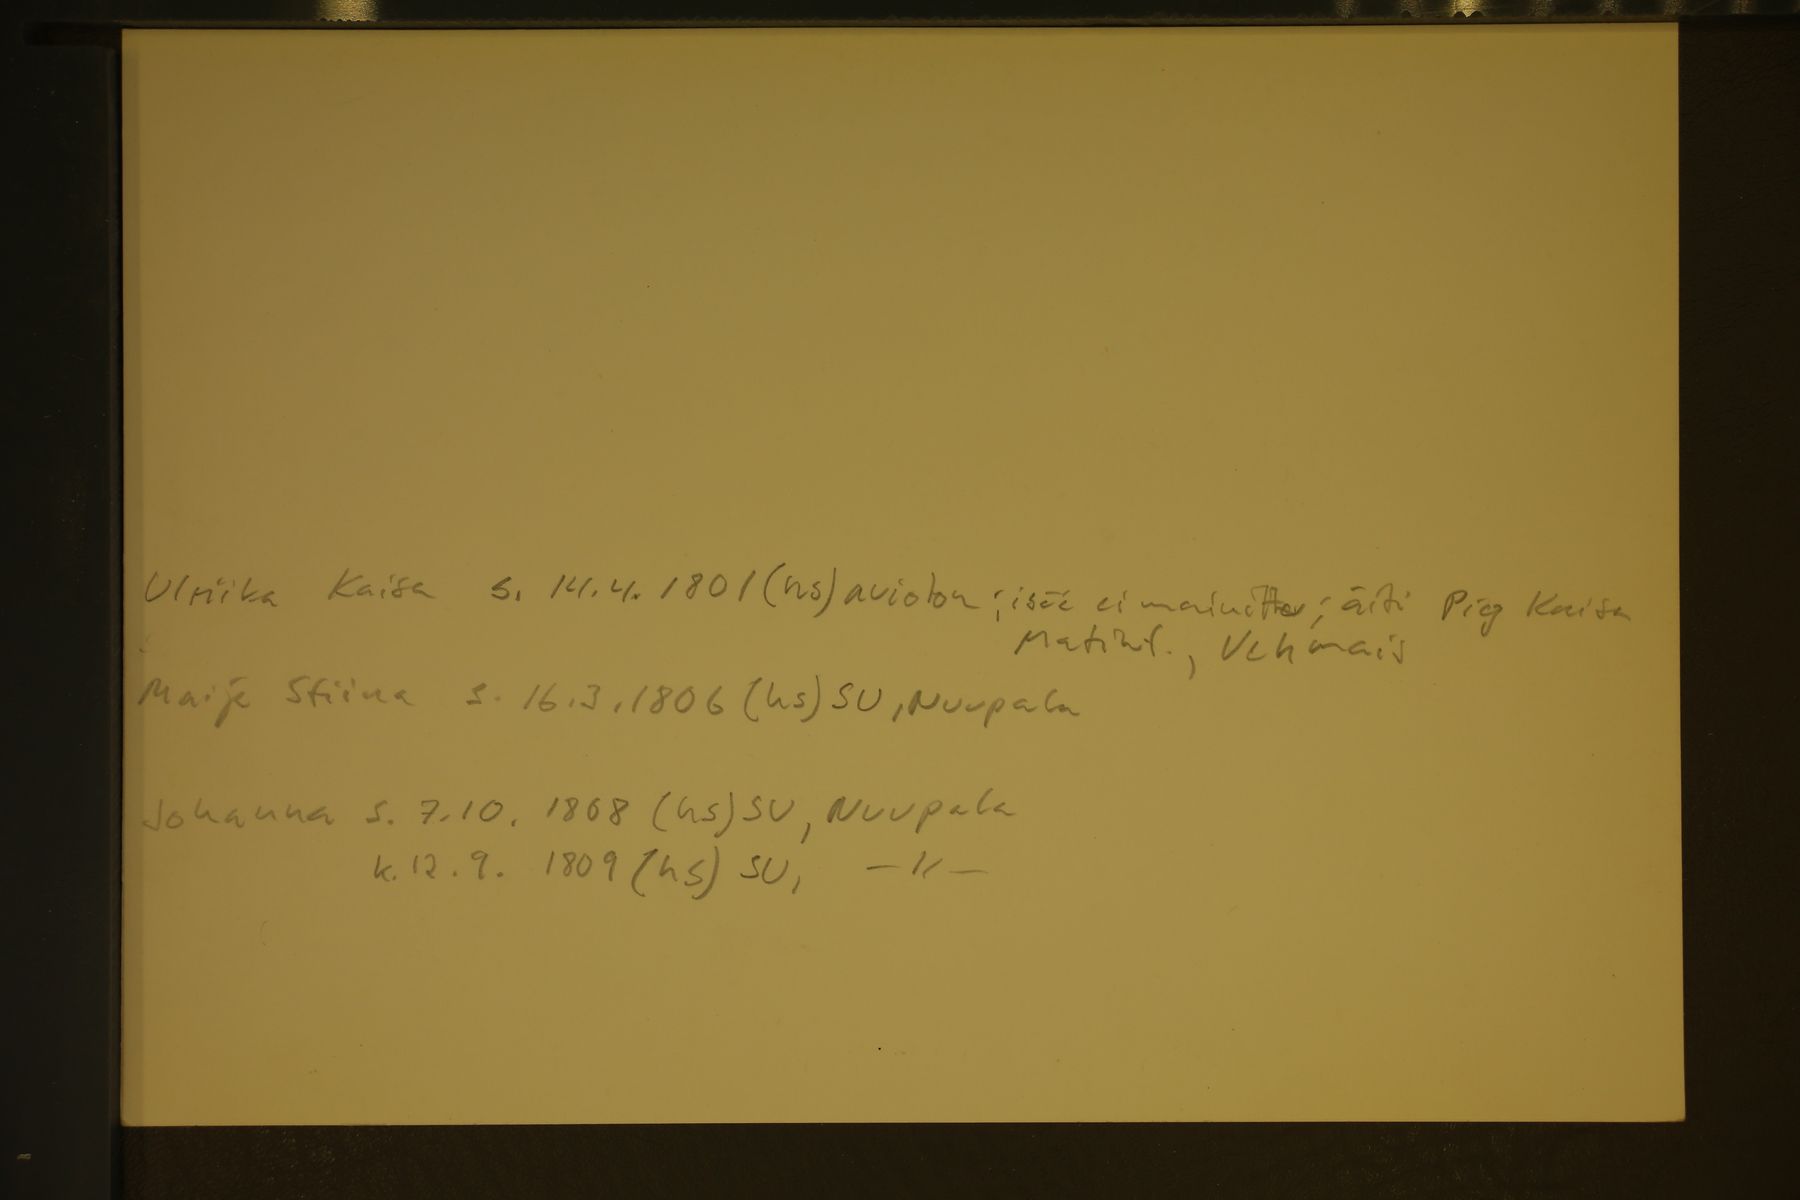 Ulriika Kaisa s. 14.4.1801 (hs) avioton; isää ei mainittu; äiti Pig Kaisa
Matint., Vehmais
Maija Stiina s. 16.3.1806 (hs) SU, Nuupala
Johanna s. 7.10.1808 (hs) SU, Nuupala
k. 12.9. 1809 (hs) SU, —"—